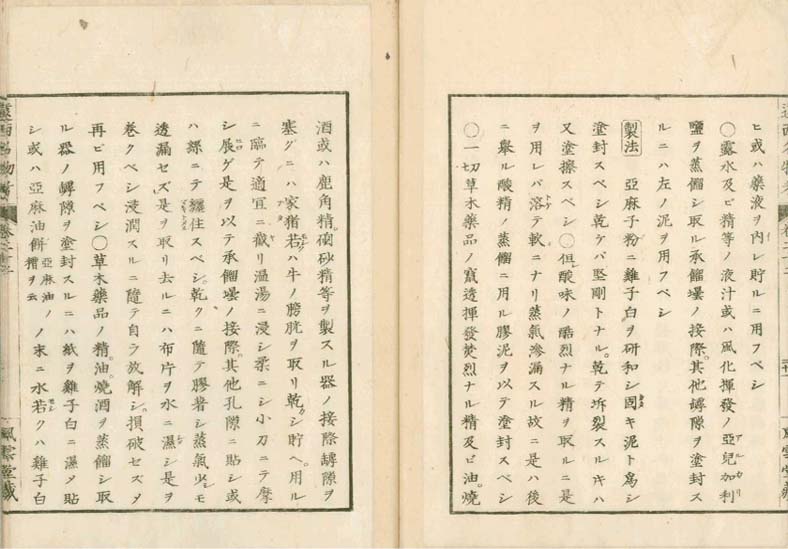 ヒ或ハ藥液ヲ内レ貯ルニ用フベシ
○露水及ヒ精等ノ液汁或ハ風化揮發ノ亞兒加利
鹽ヲ蒸餾シ取ル承餾壜ノ接際。其他罅隙ヲ塗封ス
ルニハ左ノ泥ヲ用フベシ
製法 亞麻子粉ニ雞子白ヲ研和シ固キ泥ト爲シ
塗封スベシ乾ケバ堅剛トナル。乾テ坼裂スルキハ
又塗擦スベシ○但酸味ノ酷烈ナル精ヲ取ルニ是
ヲ用レバ溶テ軟ニナリ蒸氣滲漏スル故ニ是ハ後
ニ擧ル酸精ノ蒸餾ニ用ル膠泥ヲ以テ塗封スベシ
○一切草木藥品ノ竄透揮發焚烈ナル精及ビ油。燒
酒或ハ鹿角精。硇砂精等ヲ製スル器ノ接際罅隙ヲ
塞グニハ家猪若ハ牛ノ膀胱ヲ取リ乾シ貯ヘ。用ル
ニ臨テ適宜ニ截リ温湯ニ浸シ柔ニシ小刀ニテ摩
シ展ゲ是ヲ以テ承餾壜ノ接際。其他孔隙ニ貼シ或
ハ綵ニテ纏住スベシ。乾クニ隨テ膠着シ蒸氣少シモ
透漏セズ是ヲ取リ去ルニハ布片ヲ水ニ濕シ是ヲ
卷クベシ浸潤スルニ隨テ自ラ放解シ。損破セズメ
再ビ用フベシ○草木藥品ノ精。油。燒酒ヲ蒸餾シ取
ル器ノ罅隙ヲ塗封スルニハ紙ヲ雞子白ニ濕メ貼
シ或ハ亞麻油餅亞麻油ノ糟ヲ云ノ末ニ水若クハ雞子白
遠西名物考
卷二十二
風雲堂藏